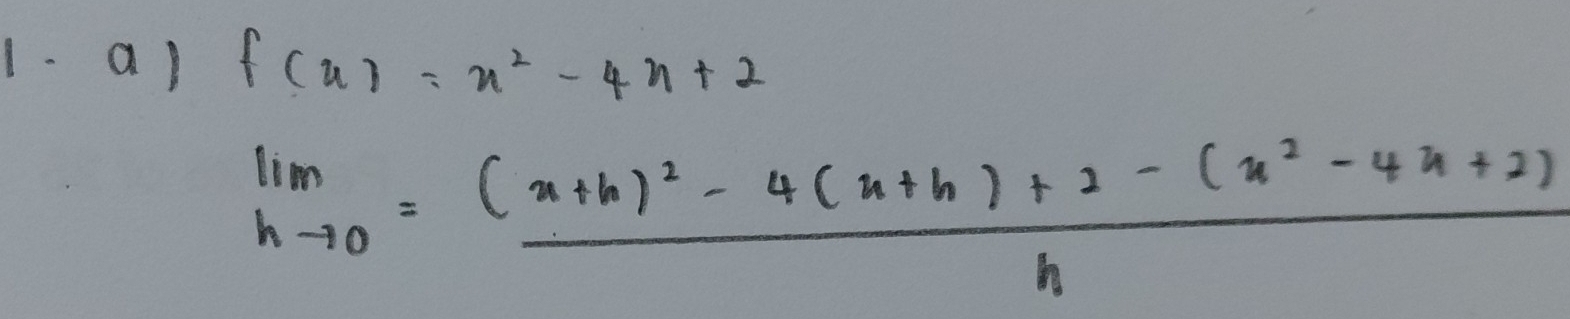 1. a) f(x) = x² - 4x + 2
lim h→0 = ((x+h)² - 4(x+h) + 2 - (x² - 4x + 2))/h